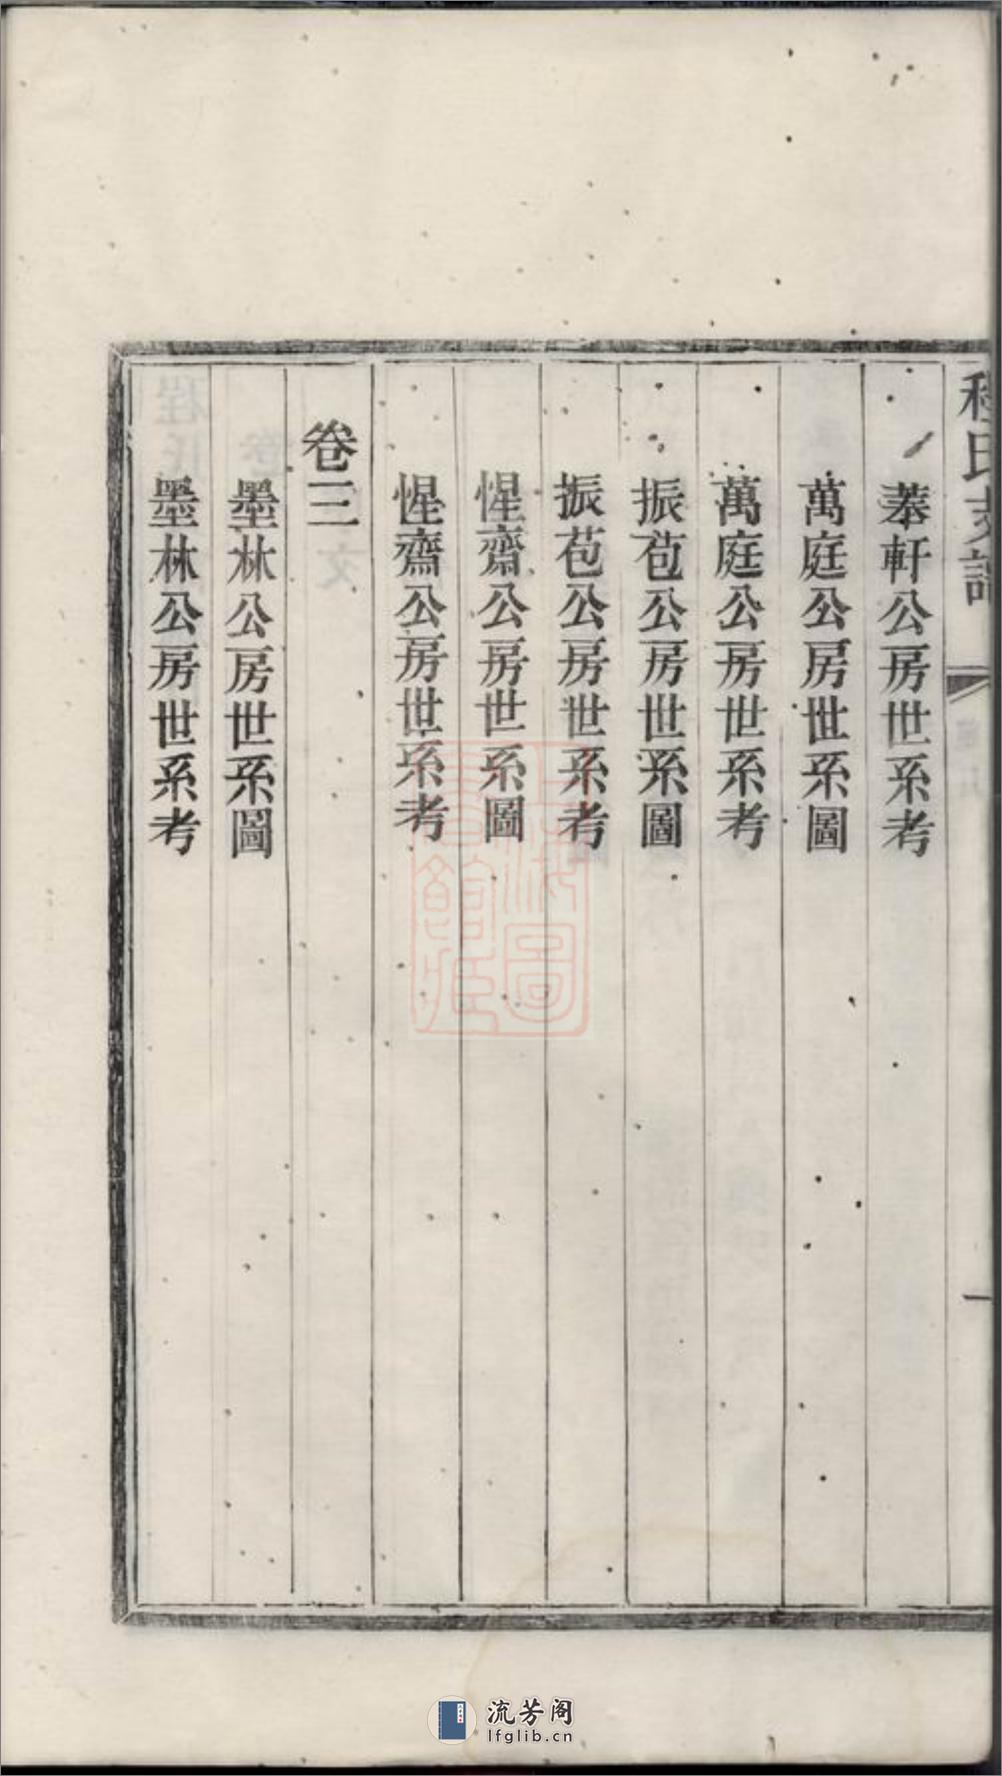 程氏支譜
一
蓁軒公房世系考
萬庭公房世系圖
萬庭公房世系考
振苞公房世系圖
振苞公房世系考
惺齋公房世系圖
惺齋公房世系考
卷三
墨林公房世系圖
墨林公房世系考
上海圖書館藏
流芳阁
lfglib.cn